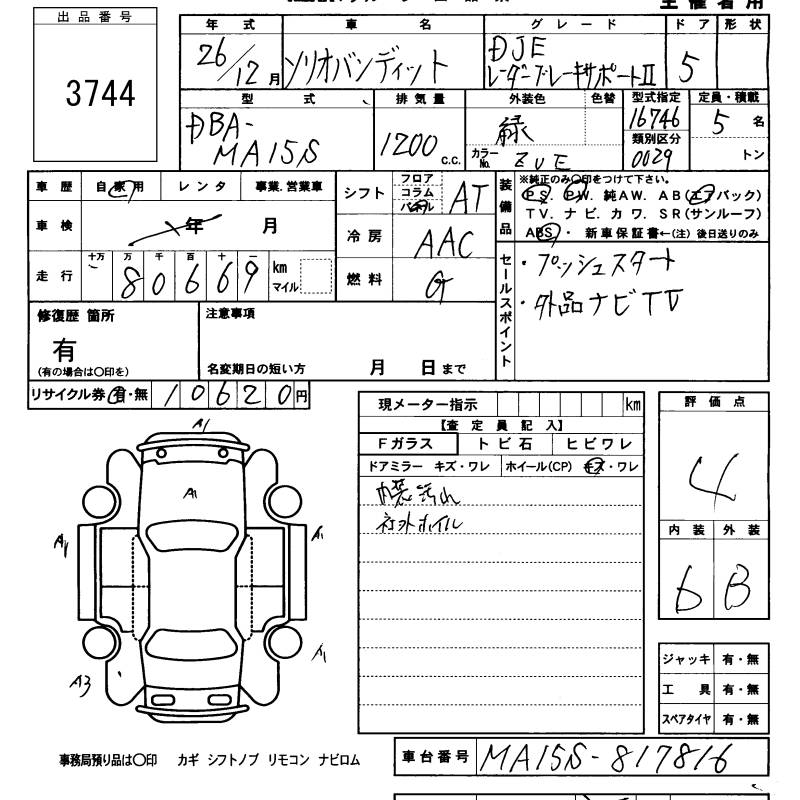 主催者用
出品番号
3744
年式 車名 グレード ドア 形状
26/12月 ソリオバンディット DJE レーダーブレーキサポートII 5
型式 排気量 外装色 色替 型式指定 定員・積載
DBA-MA15S 1200 c.c. 緑 16746 5 名
カラーNo. ZVE 類別区分 0029 トン
車歴 自家用 レンタ 事業.営業車
シフト フロア コラム パネル AT
車検 年 月
冷房 AAC
走行 十万 万 千 百 十 一
80669 km マイル
燃料 G
装備品 ※純正のみ〇印をつけて下さい。
PS. PW. 純AW. AB(エアバック)
TV. ナビ. カワ. SR(サンルーフ)
ABS. ・ 新車保証書←(注) 後日送りのみ
セールスポイント
・プッシュスタート
・外品ナビTV
修復歴 箇所
有
(有の場合は〇印を)
注意事項
名変期日の短い方 月 日まで
リサイクル券 有・無 10620円
現メーター指示 km
【査定員記入】
Fガラス トビ石 ヒビワレ
ドアミラー キズ・ワレ ホイール(CP) キズ・ワレ
内装汚れ
社外ホイル
評価点
4
内装 外装
6 B
A1
A1
A1
A1
A1
A3
ジャッキ 有・無
工具 有・無
スペアタイヤ 有・無
事務局預り品は〇印 カギ シフトノブ リモコン ナビロム
車台番号 MA15S-817816